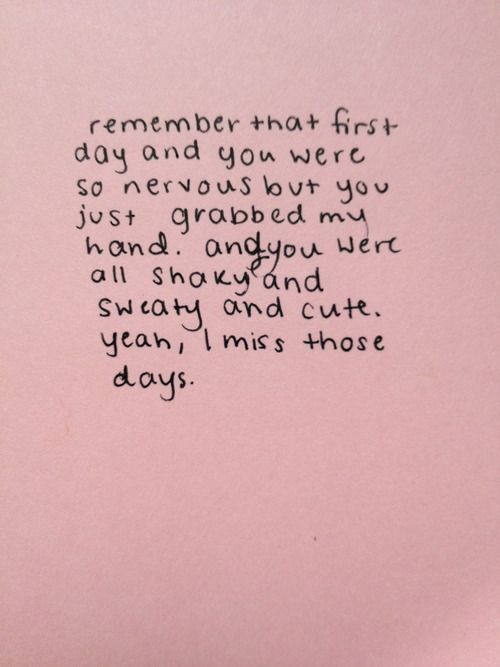 remember that first
day and you were
so nervous but you
just grabbed my
hand. and you were
all shaky and
sweaty and cute.
yeah, I miss those
days.